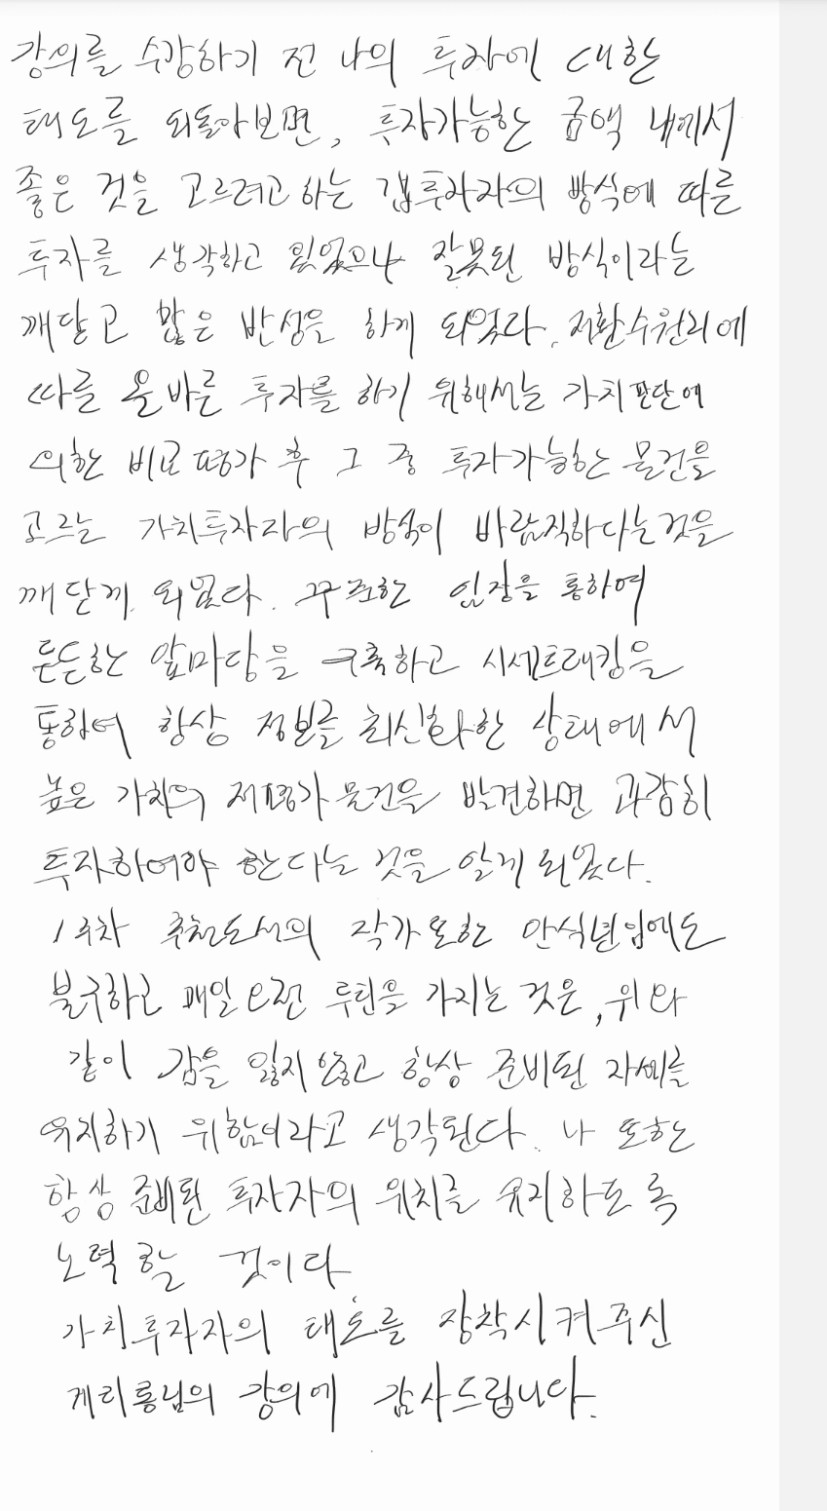 강의를 수강하기 전 나의 투자에 대한
태도를 되돌아보면, 투자가능한 금액 내에서
좋은 것을 고르려고 하는 갭투자자의 방식에 따른
투자를 생각하고 있었으나 잘못된 방식이라는
깨닫고 많은 반성을 하게 되었다. 저환수원리에
따른 올바른 투자를 하기 위해서는 가치판단에
의한 비교평가 후 그 중 투자가능한 물건을
고르는 가치투자자의 방식이 바람직하다는것을
깨닫게 되었다. 꾸준한 임장을 통하여
튼튼한 앞마당을 구축하고 시세트래킹을
통하여 항상 정보를 최신화한 상태에서
높은 가치의 저평가 물건을 발견하면 과감히
투자하여야 한다는 것을 알게 되었다.
1주차 추천도서의 작가 또한 안식년임에도
불구하고 매일 오전 루틴을 가지는 것은, 위와
같이 감을 잃지 않고 항상 준비된 자세를
유지하기 위함이라고 생각된다. 나 또한
항상 준비된 투자자의 위치를 유지하도록
노력할 것이다
가치투자자의 태도를 장착시켜주신
게리롱님의 강의에 감사드립니다.